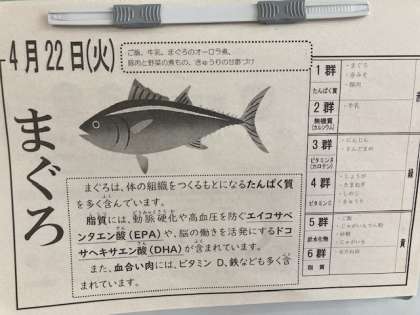 4月22日(火)
ご飯、牛乳、まぐろのオーロラ煮、
豚肉と野菜の煮もの、きゅうりの甘酢づけ
まぐろ
まぐろは、体の組織をつくるもとになるたんぱく質
を多く含んでいます。
脂質には、動脈硬化や高血圧を防ぐエイコサペ
ンタエン酸(EPA)や、脳の働きを活発にするドコ
サヘキサエン酸(DHA)が含まれています。
また、血合い肉には、ビタミンD、鉄なども多く含
まれています。
1群
たんぱく質
・まぐろ
・赤みそ
・豚肉
2群
無機質
(カルシウム)
・牛乳
3群
ビタミンA
(カロテン)
・にんじん
・さんどまめ
4群
ビタミンC
・しょうが
・たまねぎ
・しめじ
・きゅうり
5群
炭水化物
・ご飯
・じゃがいもでん粉
・砂糖
・じゃがいも
6群
脂質
緑
黄